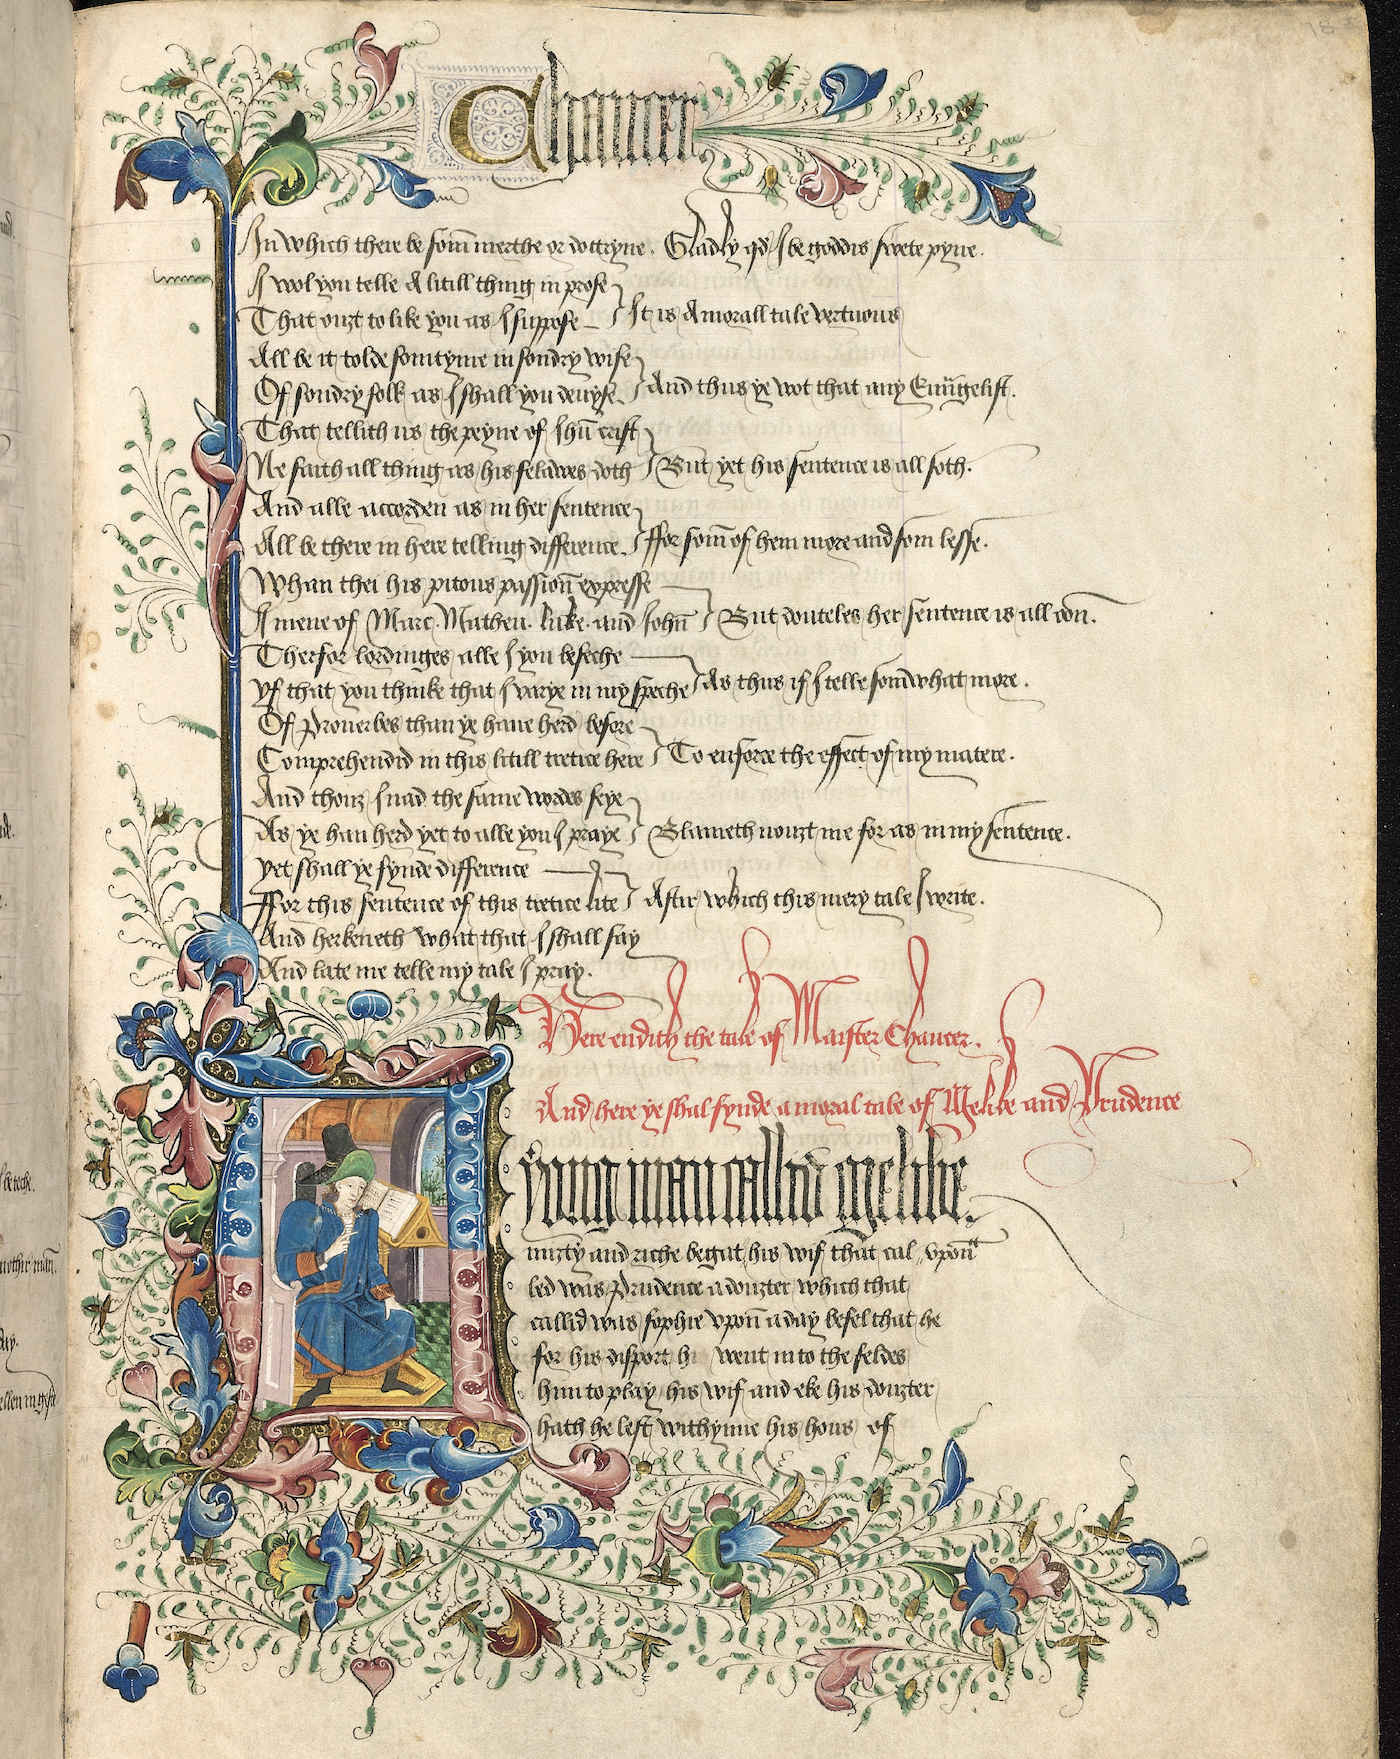 Chaucer
In which there be som̄ merthe or doctryne. Gladly qd̄ I be goddis swete pyne.
I wol you telle A litill thing in prose
That ouzt to like you as I suppose It is A morall tale vertuous
All be it tolde somtyme in sondry wise
Of sondry folk as I shall you deuyse. And thus ye wot that any Euūgelist.
That tellith us the peyne of Ihū crist
Ne saith all thing as his felawes doth But yet his sentence is all soth.
And alle accorden as in her sentence
All be there in here telling difference. ffor som̄ of hem more and som lesse.
Whan thei his pitous passion̄ expresse
I mene of Marc. Matheu. luke. and Iohn̄ But douteles her sentence is all oon̄.
Therfor lordinges alle I you beseche
yf that you thinke that I varye in my speche As thus if I telle som̄what more.
Of Prouerbes than ye haue herd before
Comprehendid in this litill tretice here To enforce the effect of my matere.
And thouz I nad the same wordes seye
As ye han herd yet to alle you I praye Blameth nouzt me for as in my sentence.
yet shall ye fynde difference
ffor this sentence of this tretice lite Aftir which this mery tale I write.
And herkeneth what that I shall say
And late me telle my tale I pray.
Here endith the tale of Maister Chaucer.
And here ye shul fynde a moral tale of Melibe and Prudence
yong man callid Melibe.
myzty and riche begat his wif that cal vpon̄
led was Prudence a douzter which that
callid was sophie vpon̄ a day befel that he
for his disport h went in to the feldes
him to play his wif and eke his douzter
hath he left withynne his hous of